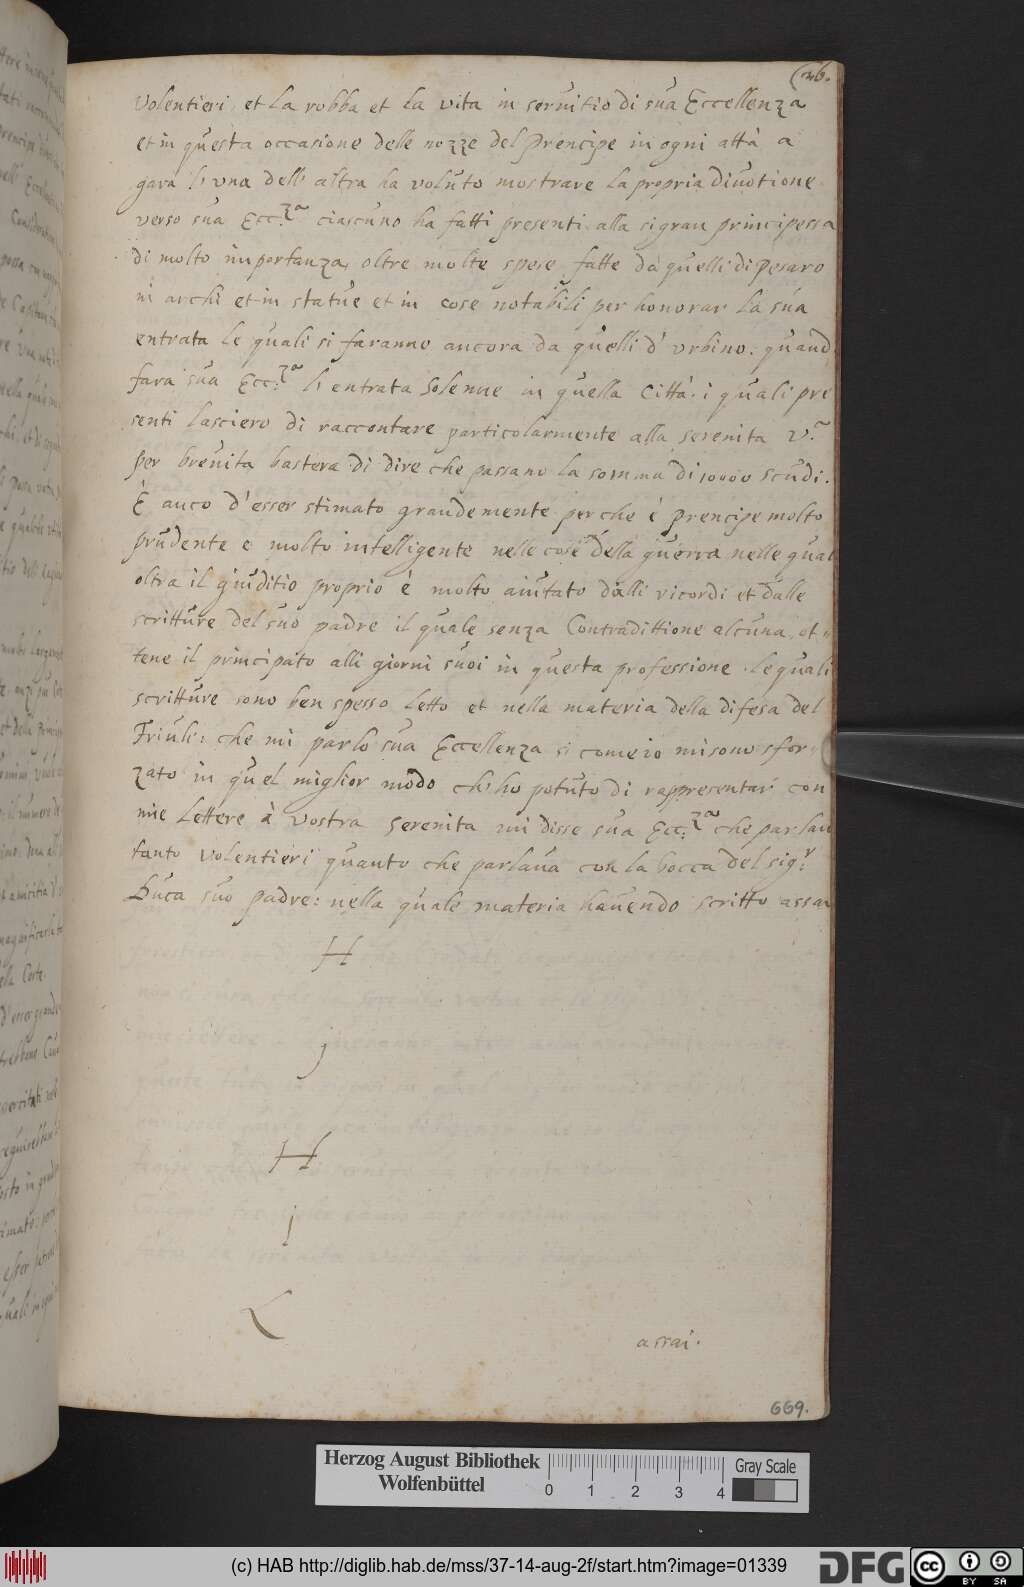 26.
Volentieri, et la robba et la vita in seruitio di sua Eccellenza
et in questa occasione delle nozze del Prencipe in ogni attà a
gara l' una dell' altra ha voluto mostrare la propria diuotione
verso sua Ecc.za ciascuno ha fatti presenti alla sigran principessa
di molto importanza, oltre molte spese fatte dà quelli di Pesaro
in archi et in statue et in cose notabili per honorar la sua
entrata le quali si faranno ancora da quelli d' Urbino. quand
fara sua Ecc.za l' entrata Solenne in quella Città. i quali pre
senti lasciero di raccontare particolarmente alla serenita V.a
per breuita bastera di dire che passano la somma di 10000 scudi.
È anco d'esser stimato grandemente perche è Prencipe molto
prudente e molto intelligente nelle cose della guerra nelle qual
oltra il giuditio proprio è molto aiutato dalli ricordi et dalle
scritture del suo padre il quale senza Contradittione alcuna ot-
tene il principato alli giorni suoi in questa professione. le quali
scritture sono ben spesso letto et nella materia della difesa del
Friuli: che mi parlo sua Eccellenza si come io mi sono sfor-
zato in quel miglior modo ch'ho potuto di rappresentar con
mie lettere à Vostra Serenita mi disse sua Ecc.za che parlau
tanto volentieri quanto che parlaua con la bocca del sig.r
Duca suo padre: nella quale materia hauendo scritto assai
H
j
H
j
L
assai.
669.
Herzog August Bibliothek
Wolfenbüttel
0 1 2 3 4
Gray Scale
(c) HAB http://diglib.hab.de/mss/37-14-aug-2f/start.htm?image=01339
DFG
cc
BY SA